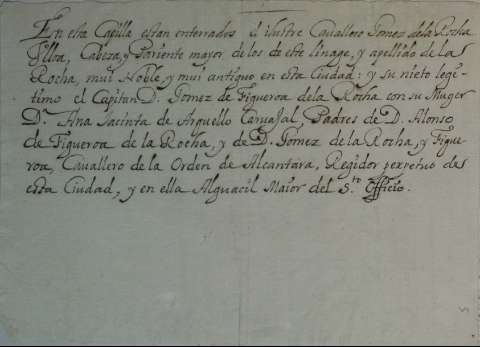 En esta Capilla estan enterrados el ilustre Cavallero Gomez de la Rocha
Vlloa, Cabeza, y Pariente mayor de los de este linage, y apellido de la
Rocha, mui Noble, y mui antiguo en esta Ciudad: y su nieto legi-
timo el Capitan D. Gomez de Figueroa de la Rocha con su Muger
Dª. Ana Jacinta de Arguello Carvajal, Padres de D. Alonso
de Figueroa de la Rocha, y de D. Gomez de la Rocha, y Figue-
roa, Cavallero de la Orden de Alcantara, Regidor perpetuo de
esta Ciudad, y en ella Alguacil Maior del S.to Officio.